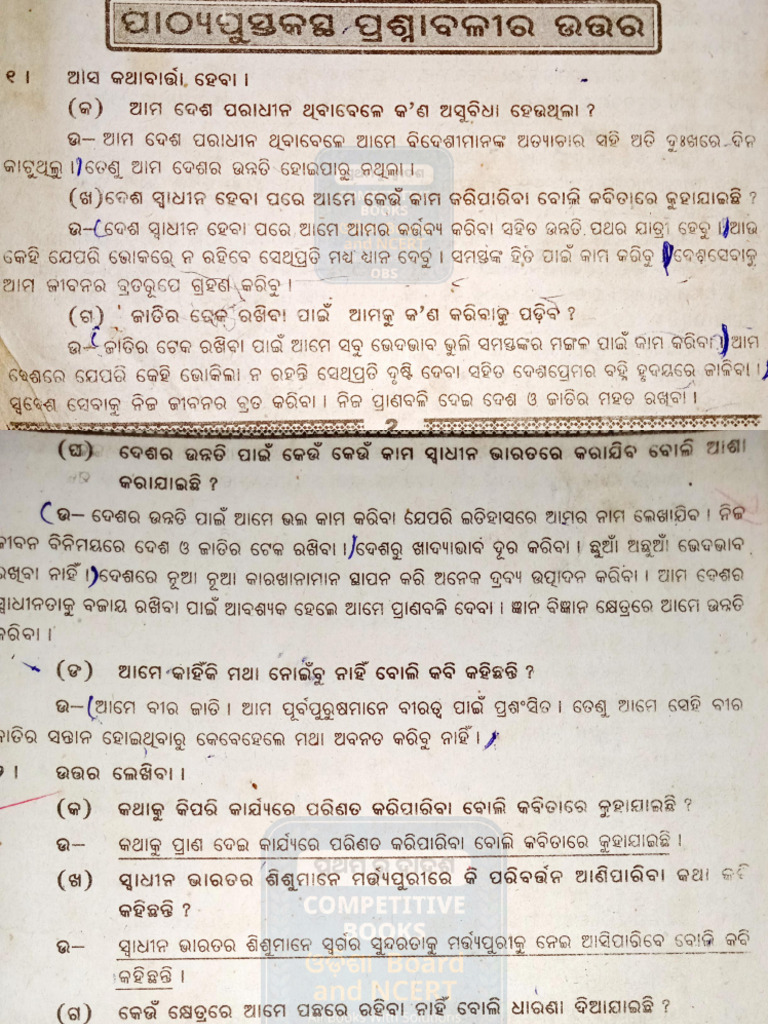 ପାଠ୍ୟପୁସ୍ତକସ୍ଥ ପ୍ରଶ୍ନାବଳୀର ଉତ୍ତର
୧ । ଆସ କଥାବାର୍ତ୍ତା ହେବା ।
(କ) ଆମ ଦେଶ ପରାଧୀନ ଥିବାବେଳେ କ'ଣ ଅସୁବିଧା ହେଉଥିଲା ?
ଉ– ଆମ ଦେଶ ପରାଧୀନ ଥିବାବେଳେ ଆମେ ବିଦେଶୀମାନଙ୍କ ଅତ୍ୟାଚାର ସହି ଅତି ଦୁଃଖରେ ଦିନ
କାଟୁଥିଲୁ । ତେଣୁ ଆମ ଦେଶର ଉନ୍ନତି ହୋଇପାରୁ ନଥିଲା ।
(ଖ) ଦେଶ ସ୍ୱାଧୀନ ହେବା ପରେ ଆମେ କେଉଁ କାମ କରିପାରିବା ବୋଲି କବିତାରେ କୁହାଯାଇଛି ?
ଉ– ଦେଶ ସ୍ୱାଧୀନ ହେବା ପରେ ଆମେ ଆମର କର୍ତ୍ତବ୍ୟ କରିବା ସହିତ ଉନ୍ନତି ପଥର ଯାତ୍ରୀ ହେବୁ । ଆଉ
କେହି ଯେପରି ଭୋକରେ ନ ରହିବେ ସେଥିପ୍ରତି ମଧ୍ୟ ଧ୍ୟାନ ଦେବୁ । ସମସ୍ତଙ୍କ ହିତ ପାଇଁ କାମ କରିବୁ । ଦେଶସେବାକୁ
ଆମ ଜୀବନର ବ୍ରତରୂପେ ଗ୍ରହଣ କରିବୁ ।
(ଗ) ଜାତିର ଟେକ ରଖିବା ପାଇଁ ଆମକୁ କ'ଣ କରିବାକୁ ପଡ଼ିବ ?
ଉ– ଜାତିର ଟେକ ରଖିବା ପାଇଁ ଆମେ ସବୁ ଭେଦଭାବ ଭୁଲି ସମସ୍ତଙ୍କର ମଙ୍ଗଳ ପାଇଁ କାମ କରିବା । ଆମ
ଦେଶରେ ଯେପରି କେହି ଭୋକିଲା ନ ରହନ୍ତି ସେଥିପ୍ରତି ଦୃଷ୍ଟି ଦେବା ସହିତ ଦେଶପ୍ରେମର ବହ୍ନି ହୃଦୟରେ ଜାଳିବା ।
ସ୍ୱଦେଶ ସେବାକୁ ନିଜ ଜୀବନର ବ୍ରତ କରିବା । ନିଜ ପ୍ରାଣବଳି ଦେଇ ଦେଶ ଓ ଜାତିର ମହତ ରଖିବା ।
2
(ଘ) ଦେଶର ଉନ୍ନତି ପାଇଁ କେଉଁ କେଉଁ କାମ ସ୍ୱାଧୀନ ଭାରତରେ କରାଯିବ ବୋଲି ଆଶା
କରାଯାଇଛି ?
ଉ– ଦେଶର ଉନ୍ନତି ପାଇଁ ଆମେ ଭଲ କାମ କରିବା ଯେପରି ଇତିହାସରେ ଆମର ନାମ ଲେଖାଯିବ । ନିଜ
ଜୀବନ ବିନିମୟରେ ଦେଶ ଓ ଜାତିର ଟେକ ରଖିବା । ଦେଶରୁ ଖାଦ୍ୟାଭାବ ଦୂର କରିବା । ଛୁଆଁ ଅଛୁଆଁ ଭେଦଭାବ
ରଖିବା ନାହିଁ । ଦେଶରେ ନୂଆ ନୂଆ କାରଖାନାମାନ ସ୍ଥାପନ କରି ଅନେକ ଦ୍ରବ୍ୟ ଉତ୍ପାଦନ କରିବା । ଆମ ଦେଶର
ସ୍ୱାଧୀନତାକୁ ବଜାୟ ରଖିବା ପାଇଁ ଆବଶ୍ୟକ ହେଲେ ଆମେ ପ୍ରାଣବଳି ଦେବା । ଜ୍ଞାନ ବିଜ୍ଞାନ କ୍ଷେତ୍ରରେ ଆମେ ଉନ୍ନତି
କରିବା ।
(ଙ) ଆମେ କାହିଁକି ମଥା ନୋଇଁବୁ ନାହିଁ ବୋଲି କବି କହିଛନ୍ତି ?
ଉ– ଆମେ ବୀର ଜାତି । ଆମ ପୂର୍ବପୁରୁଷମାନେ ବୀରତ୍ୱ ପାଇଁ ପ୍ରଶଂସିତ । ତେଣୁ ଆମେ ସେହି ବୀର
ଜାତିର ସନ୍ତାନ ହୋଇଥିବାରୁ କେବେହେଲେ ମଥା ଅବନତ କରିବୁ ନାହିଁ ।
। ଉତ୍ତର ଲେଖିବା ।
(କ) କଥାକୁ କିପରି କାର୍ଯ୍ୟରେ ପରିଣତ କରିପାରିବା ବୋଲି କବିତାରେ କୁହାଯାଇଛି ?
ଉ– କଥାକୁ ପ୍ରାଣ ଦେଇ କାର୍ଯ୍ୟରେ ପରିଣତ କରିପାରିବା ବୋଲି କବିତାରେ କୁହାଯାଇଛି ।
(ଖ) ସ୍ୱାଧୀନ ଭାରତର ଶିଶୁମାନେ ମର୍ତ୍ତ୍ୟପୁରୀରେ କି ପରିବର୍ତ୍ତନ ଆଣିପାରିବା କଥା କବି
କହିଛନ୍ତି ?
ଉ– ସ୍ୱାଧୀନ ଭାରତର ଶିଶୁମାନେ ସ୍ୱର୍ଗର ସୁନ୍ଦରତାକୁ ମର୍ତ୍ତ୍ୟପୁରୀକୁ ନେଇ ଆସିପାରିବେ ବୋଲି କବି
କହିଛନ୍ତି ।
(ଗ) କେଉଁ କ୍ଷେତ୍ରରେ ଆମେ ପଛରେ ରହିବା ନାହିଁ ବୋଲି ଧାରଣା ଦିଆଯାଇଛି ?
COMPETITIVE
BOOKS
ଓଡ଼ିଶା Board
and NCERT